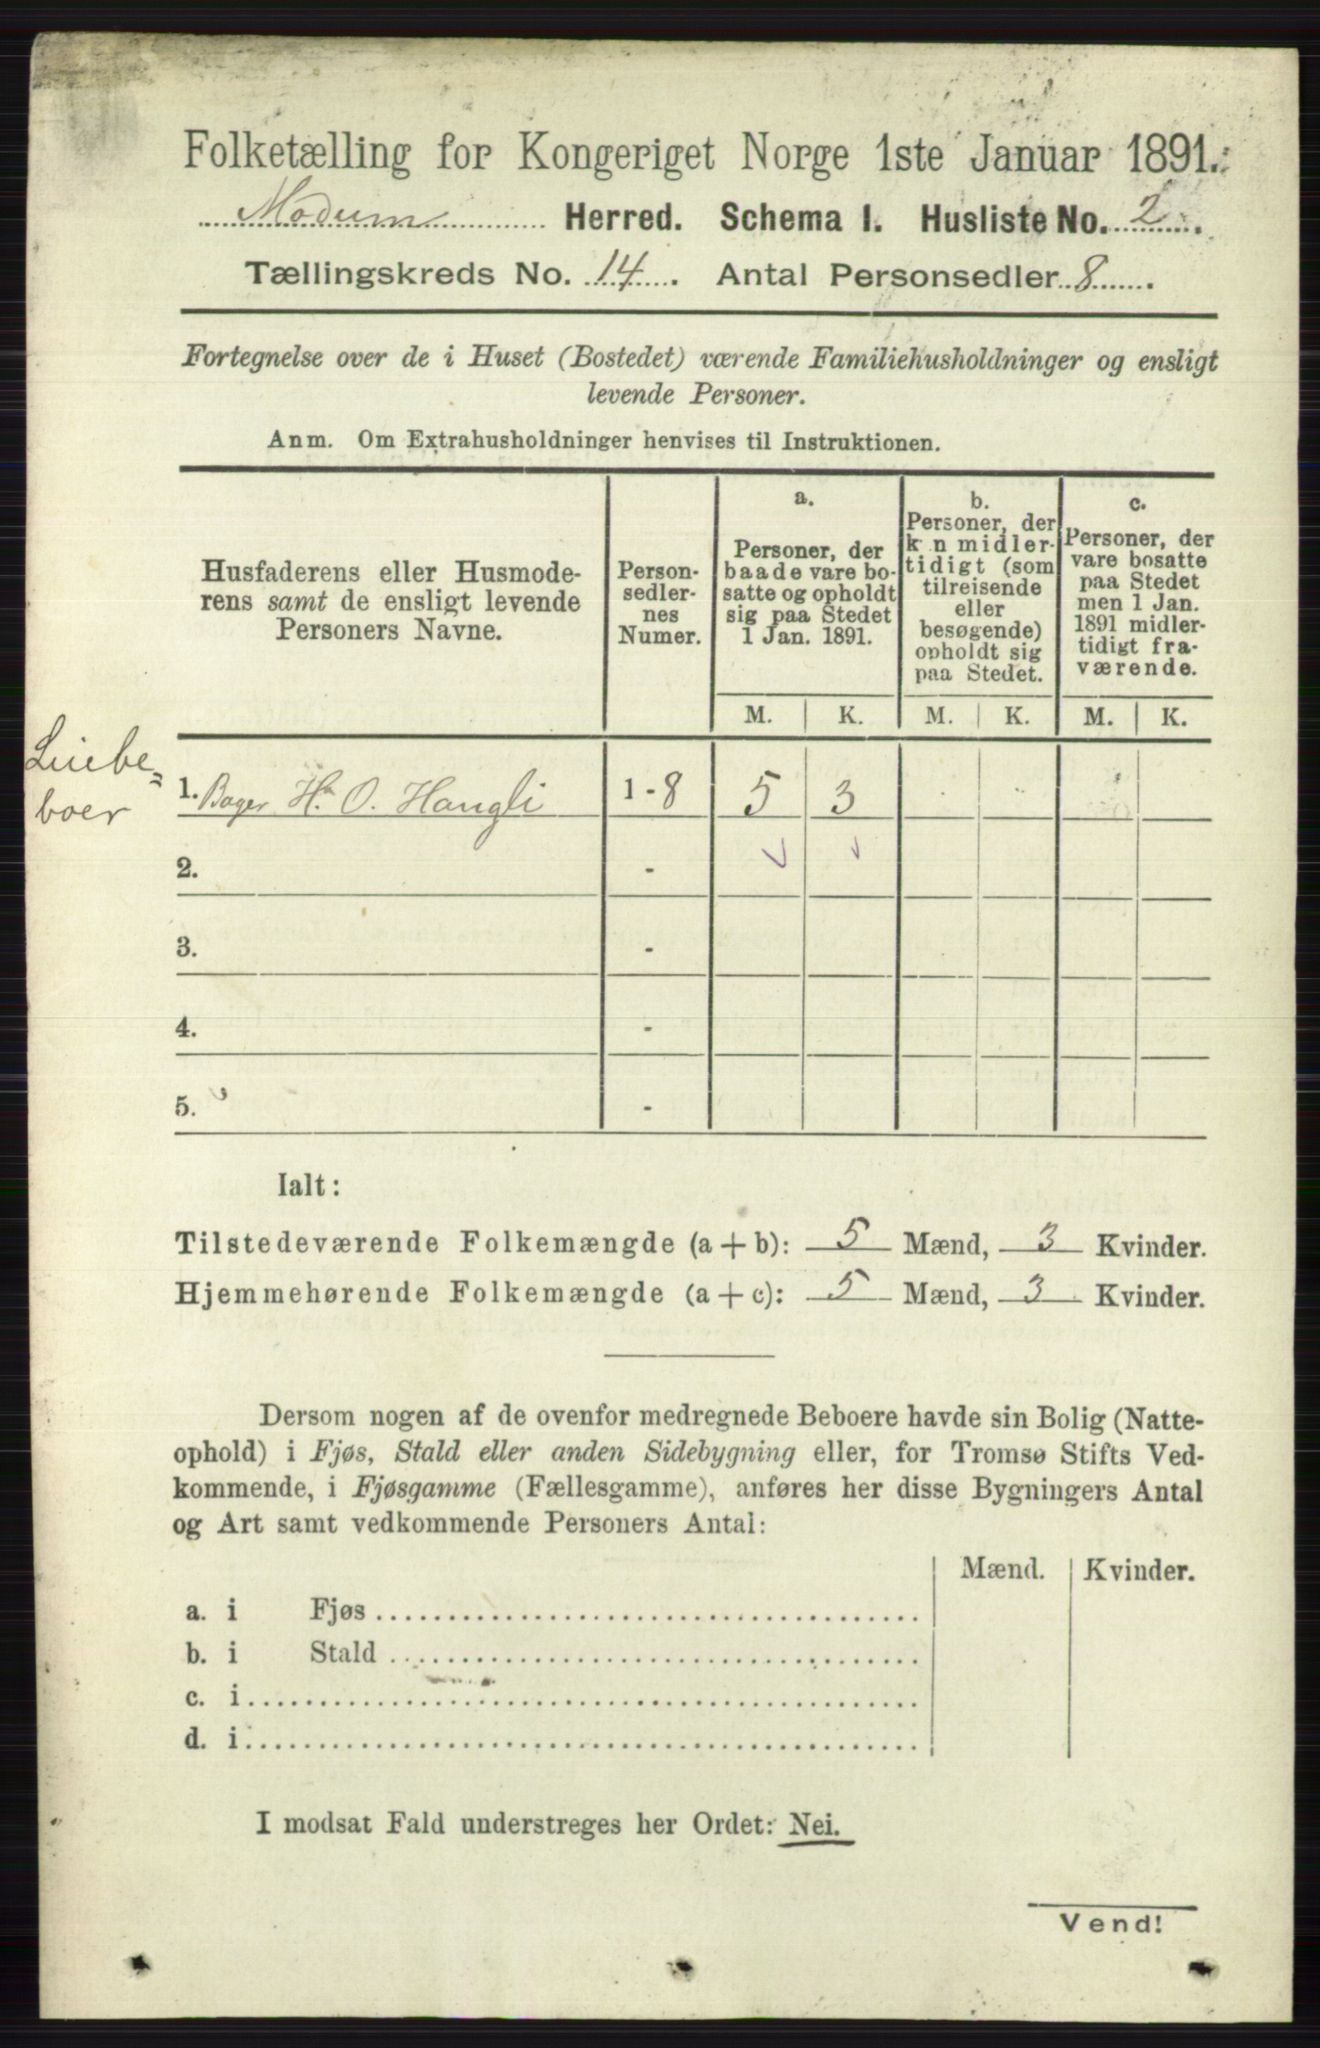 Folketælling for Kongeriget Norge 1ste Januar 1891.
Modum Herred. Schema I. Husliste No. 2.
Tællingskreds No. 14. Antal Personsedler 8.
Fortegnelse over de i Huset (Bostedet) værende Familiehusholdninger og ensligt
levende Personer.
Anm. Om Extrahusholdninger henvises til Instruktionen.
Husfaderens eller Husmode-
rens samt de ensligt levende
Personers Navne.
Person-
sedler-
nes
Numer.
a.
Personer, der
baade vare bo-
satte og opholdt
sig paa Stedet
1 Jan. 1891.
b.
Personer, der
k n midler-
tidigt (som
tilreisende
eller
besøgende)
opholdt sig
paa Stedet.
c.
Personer, der
vare bosatte
paa Stedet
men 1 Jan.
1891 midler-
tidigt fra-
værende.
M. K. M. K. M. K.
boer
1. Bager H. O. Haugli 1 - 8 5 3
2. -
3. -
4. -
5. -
Ialt:
Tilstedeværende Folkemængde (a + b): 5 Mænd, 3 Kvinder.
Hjemmehørende Folkemængde (a + c): 5 Mænd, 3 Kvinder.
Dersom nogen af de ovenfor medregnede Beboere havde sin Bolig (Natte-
ophold) i Fjøs, Stald eller anden Sidebygning eller, for Tromsø Stifts Ved-
kommende, i Fjøsgamme (Fællesgamme), anføres her disse Bygningers Antal
og Art samt vedkommende Personers Antal:
Mænd. Kvinder.
a. i Fjøs
b. i Stald
c. i
d. i
I modsat Fald understreges her Ordet: Nei.
Vend!